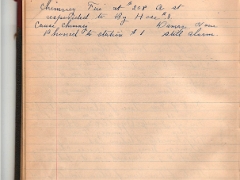 Chimney Fire at #258 A st
responded to By Hose #2.
Cause chimney Damage None
Phoned to station A 1 still alarm